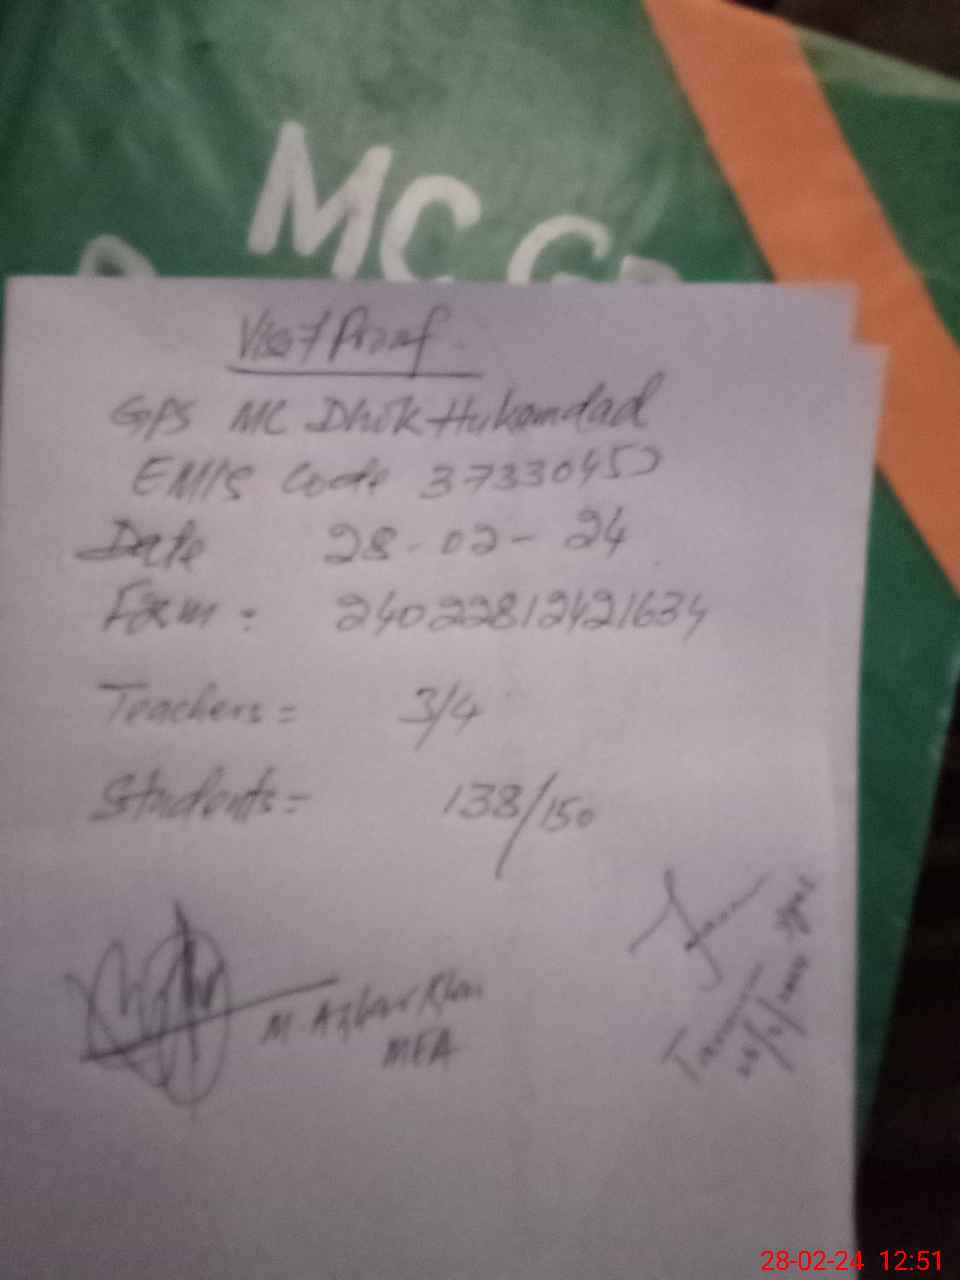 MC G
Visit Proof
GPS MC Dhok Hukamdad
EMIS Code 37330453
Date 28-02-24
Form: 24022812421634
Teachers = 3/4
Students = 138/150
M. Azhar Khan
MEA
28-02-24 12:51